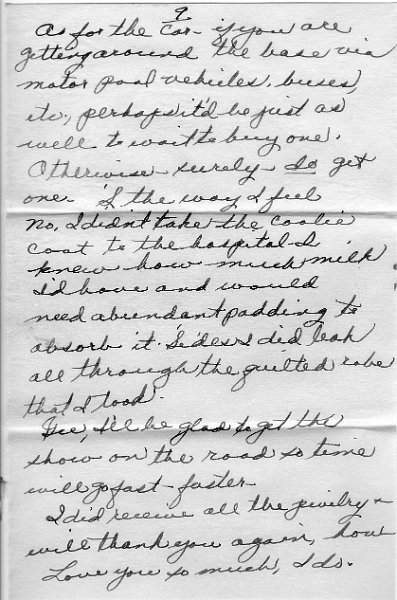 9
As for the car - if you are
getting around the base via
motor pool vehicles, buses,
etc., perhaps it'd be just as
well to wait to buy one.
Otherwise surely do get
one. 'S the way I feel
No, I didn't take the coolie
coat to the hospital - I
knew how much milk
I'd have and would
need abundant padding to
absorb it. 'Sides I did leak
all through the quilted robe
that I took.
Gee, I'll be glad to get the
show on the road so time
will go fast - faster
I did receive all the jewelry &
will thank you again, hon
Love you so much, I do.